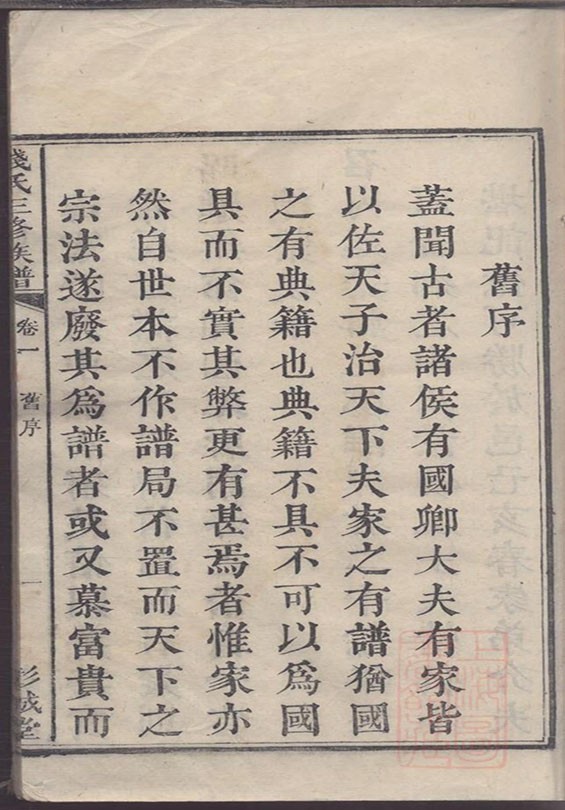 舊序
蓋聞古者諸侯有國卿大夫有家皆
以佐天子治天下夫家之有譜猶國
之有典籍也典籍不具不可以為國
具而不實其弊更有甚焉者惟家亦
然自世本不作譜局不置而天下之
宗法遂廢其為譜者或又慕富貴而
錢氏三修族譜 卷一 舊序 一 彭城堂